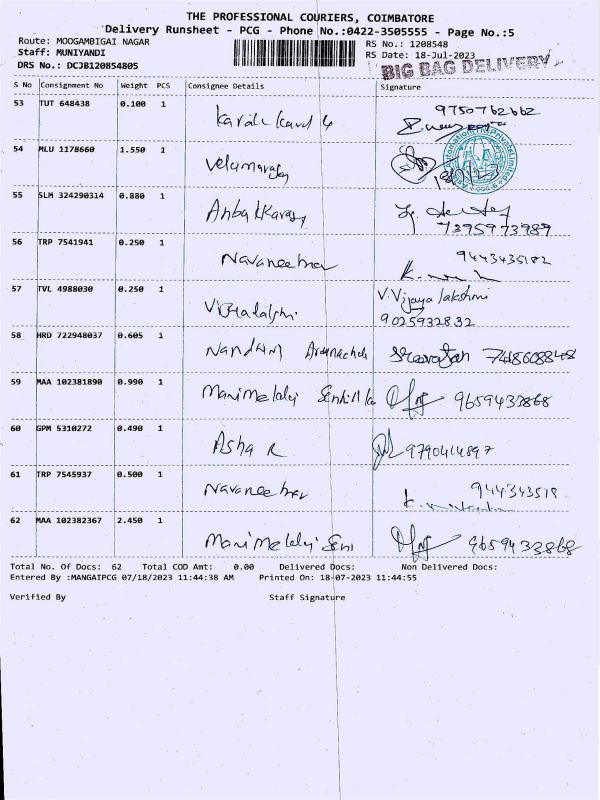 THE PROFESSIONAL COURIERS, COIMBATORE
Delivery Runsheet - PCG - Phone No.:0422-3505555 - Page No.:5
Route: MOOGAMBIGAI NAGAR RS No.: 1208548
Staff: MUNIYANDI RS Date: 18-Jul-2023
DRS No.: DCJB120854805 BIG BAG DELIVERY
S No Consignment No Weight PCS Consignee Details Signature
53 TUT 648438 0.100 1 9750762662
54 MLU 1178660 1.550 1 Velumurugan
55 SLM 324290314 0.880 1
7395973989
56 TRP 7541941 0.250 1 Navaneethan 9443435182
57 TVL 4988030 0.250 1 V. Vijaya lakshmi
9025932832
58 HRD 722948037 0.605 1 Nandhini 7418608848
59 MAA 102381890 0.990 1 Manimekalai 9659433868
60 GPM 5310272 0.490 1 Asha R 9790414897
61 TRP 7545937 0.500 1 Navaneethan 944343518
62 MAA 102382367 2.450 1 Manimekalai 9659433868
Total No. Of Docs: 62 Total COD Amt: 0.00 Delivered Docs: Non Delivered Docs:
Entered By :MANGAIPCG 07/18/2023 11:44:38 AM Printed On: 18-07-2023 11:44:55
Verified By Staff Signature